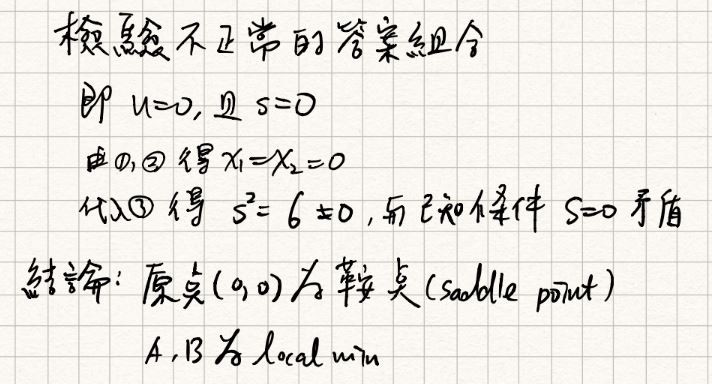 檢驗不正常的答案組合
即 u=0, 且 s=0
由①,② 得 x₁=x₂=0
代入③ 得 s²=6≠0, 与已知條件 s=0 矛盾
結論: 原点(0,0)为鞍点(saddle point)
A,B为 local min